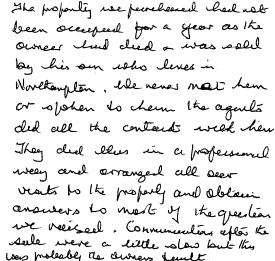 The property we purchased had not
been occupied for a year as the
owner had died & was sold
by his son who lives in
Northampton. We never met them
or spoken to them the agents
did all the contact with them
They did this in a professional
way and arranged all our
visits to the property and obtain
answers to most of the question
we raised. Communication after the
sale were a little slow but this
was probably the owners fault